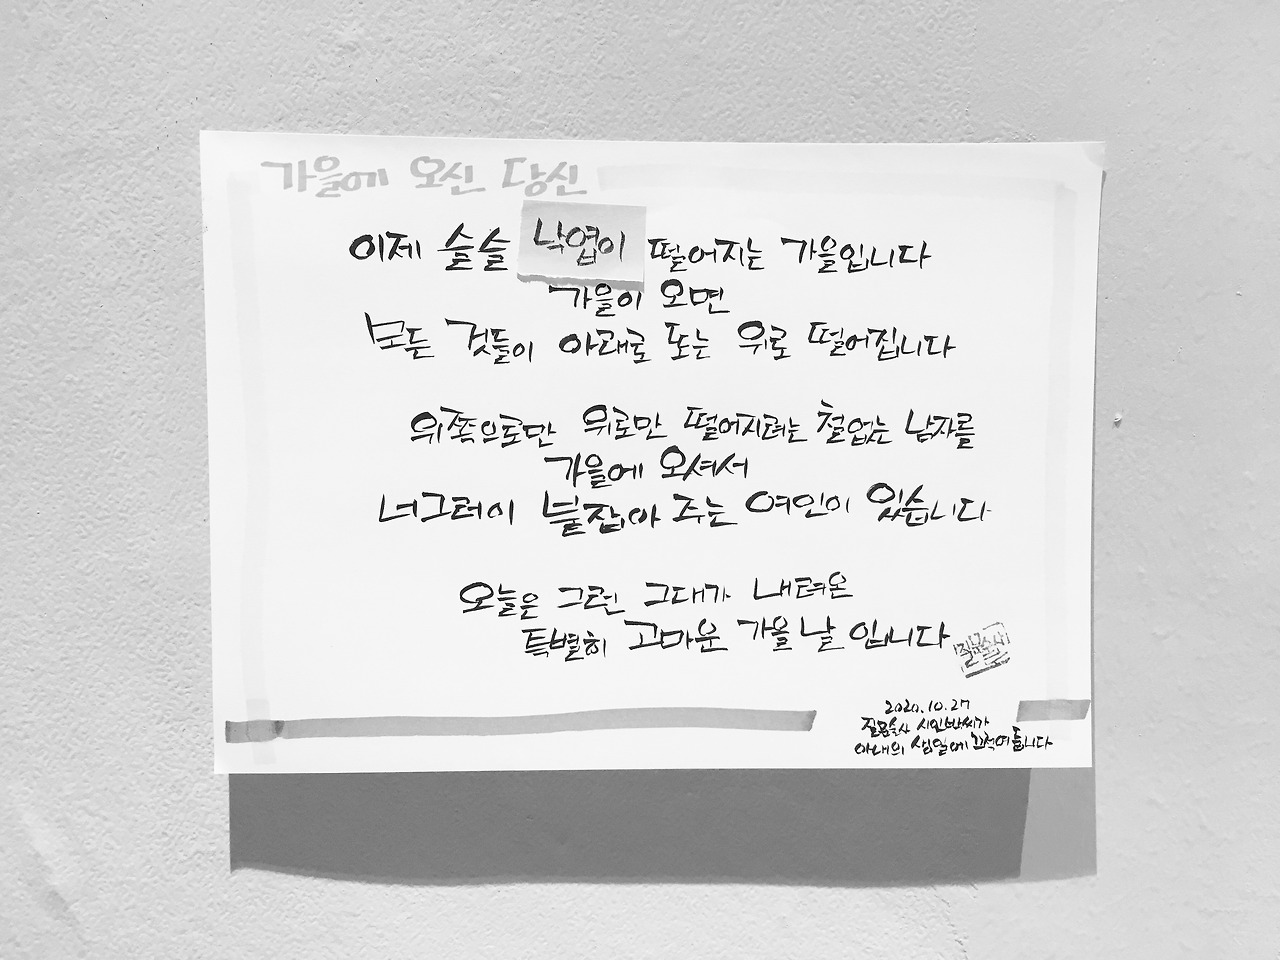 가을에 오신 당신
이제 슬슬 낙엽이 떨어지는 가을입니다
가을이 오면
모든 것들이 아래로 또는 위로 떨어집니다
위쪽으로만 위로만 떨어지려는 철없는 남자를
가을에 오셔서
너그러이 붙잡아 주는 여인이 있습니다
오늘은 그런 그대가 내려온
특별히 고마운 가을 날 입니다
질문술사
2020.10.27
질문술사 시인박씨가
아내의 생일에 끄적여 듭니다